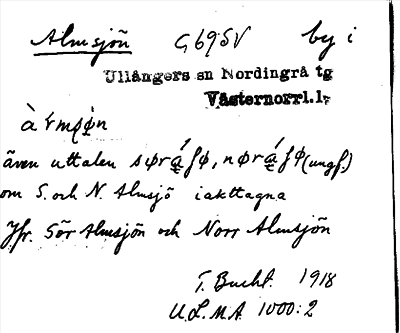 Almsjön G69SV by i
Ullångers sn Nordingrå tg
Västernorrl.l.
även uttalen
om S. och N. Almsjö iakttagna
Jfr. Sör Almsjön och Norr Almsjön
T. Bucht. 1918
U.L.M.A. 1000:2